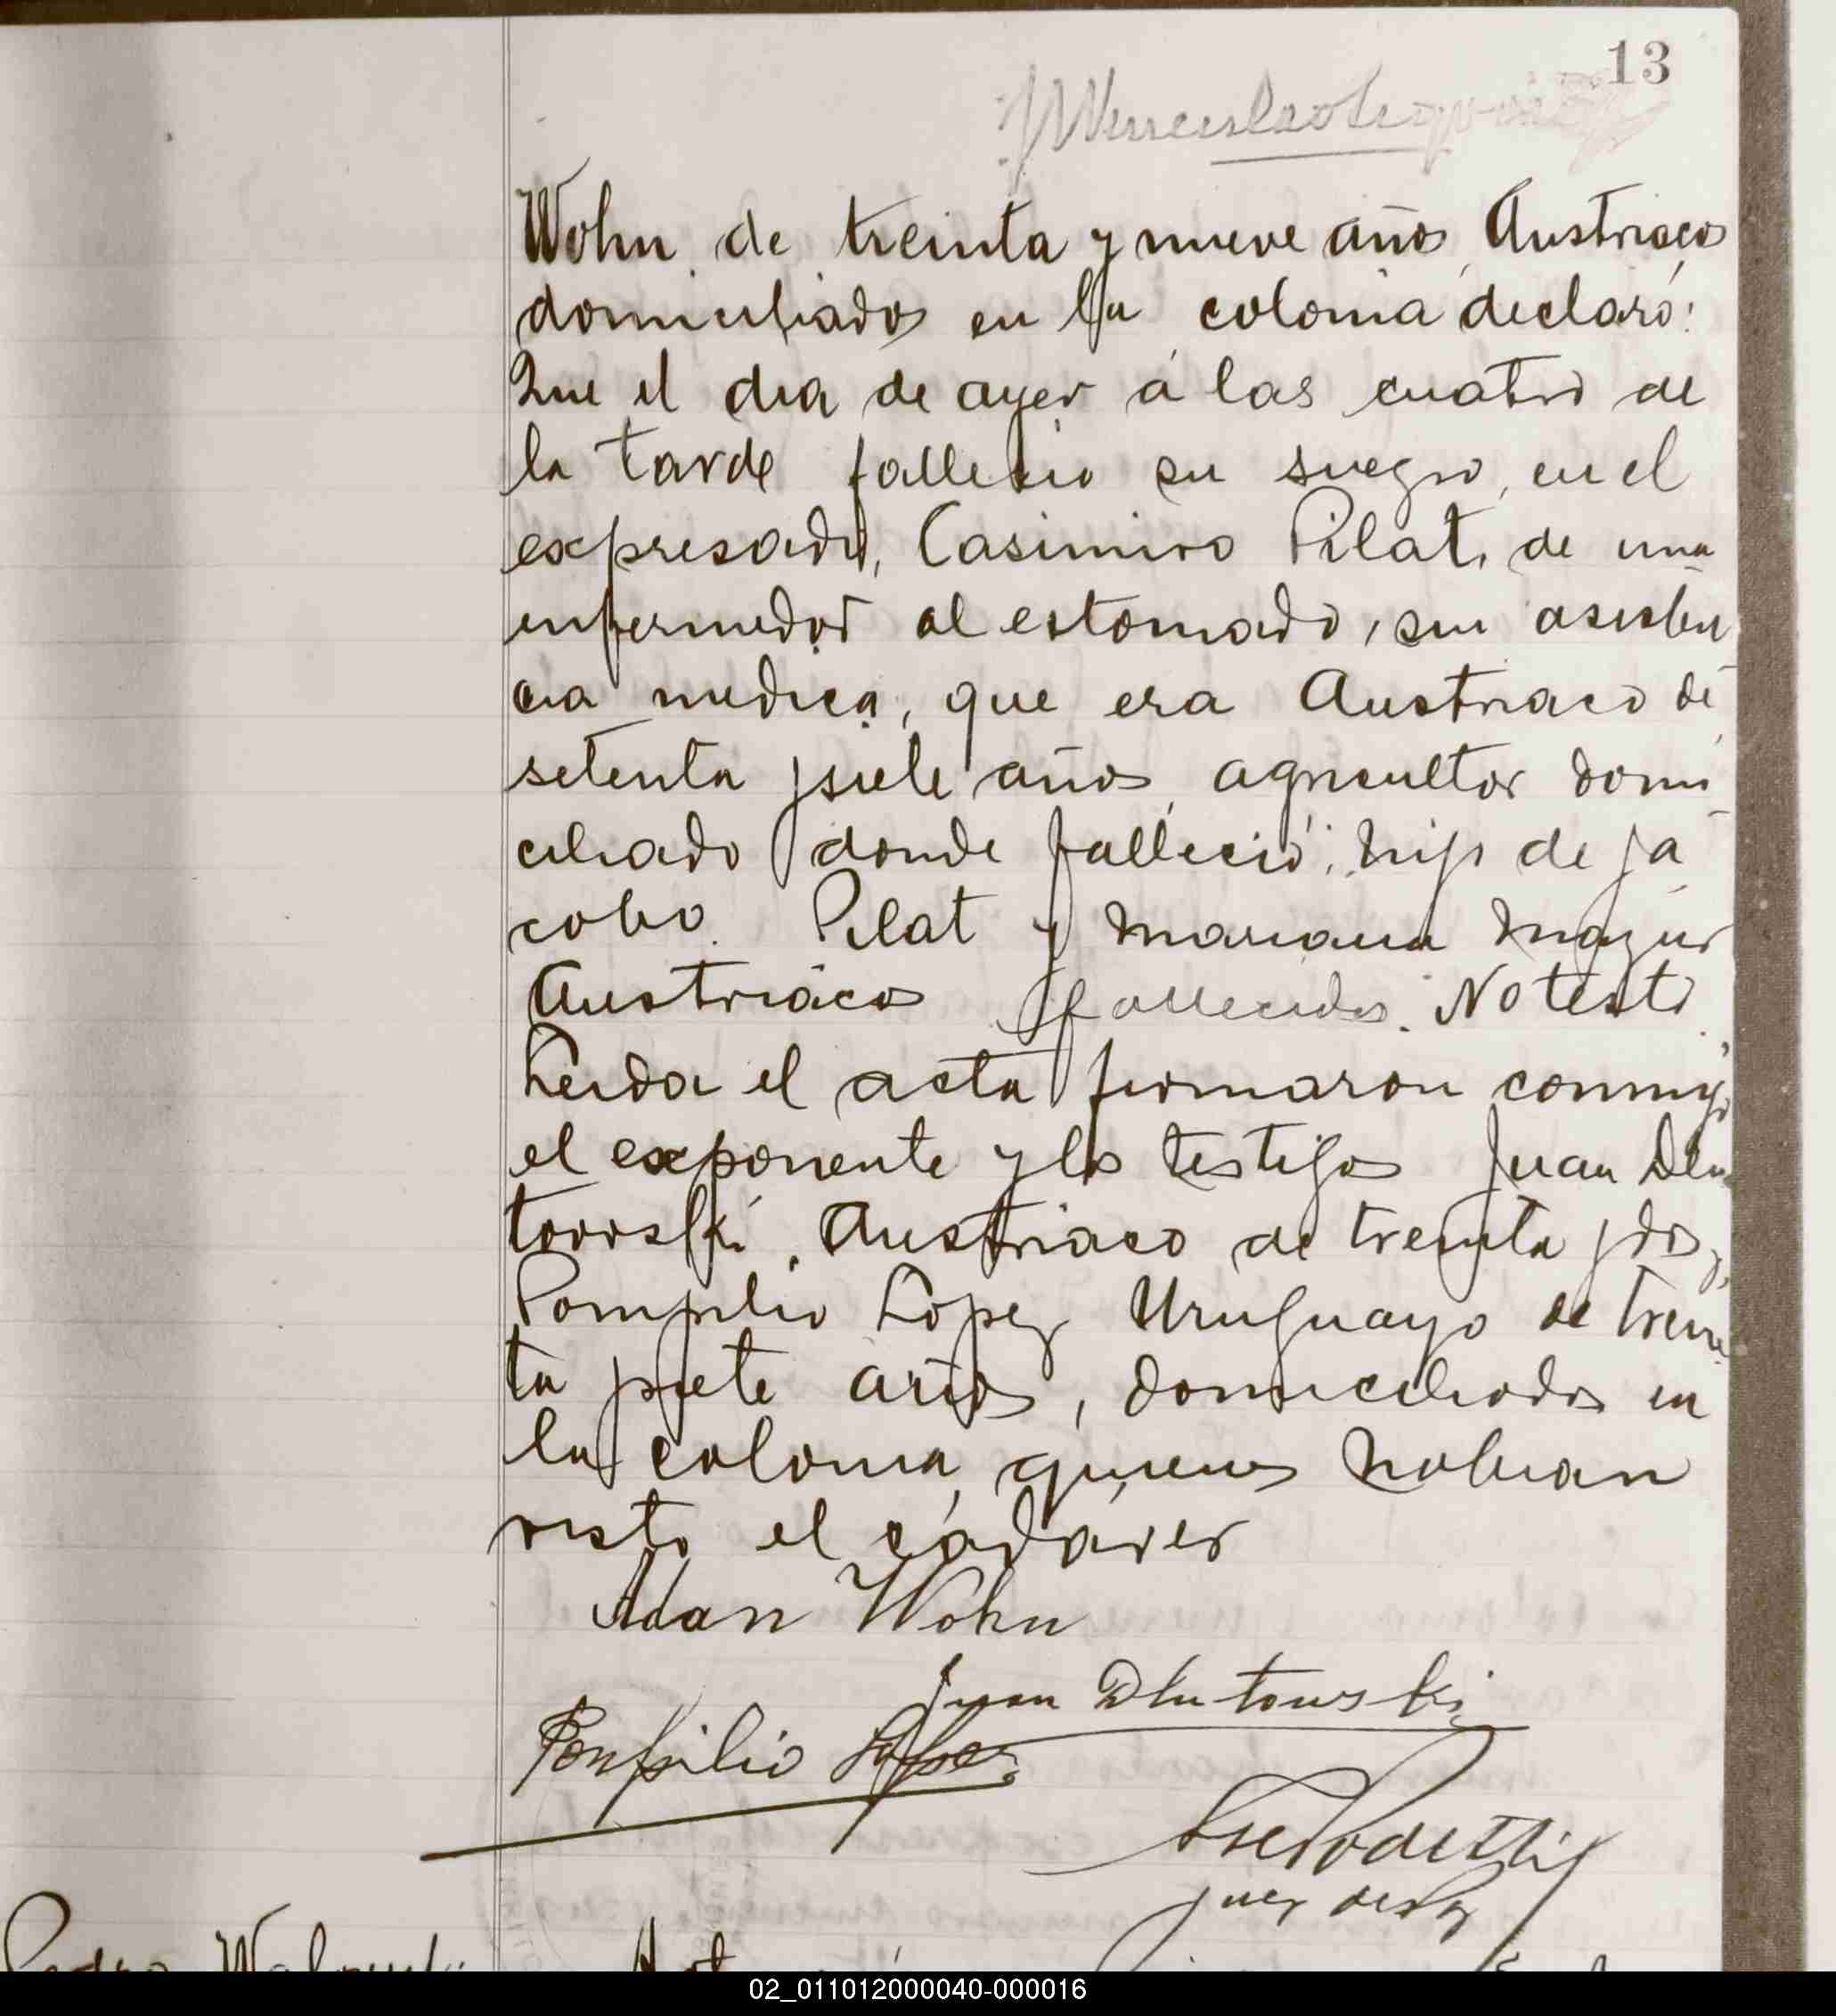 13
Wohn de treinta y nueve años, Austriaco
domiciliado en la colonia declaró:
Que el dia de ayer á las cuatro de
la tarde fallecio su suegro, en el
expresado, Casimiro Pilat, de una
enfermedad al estomado, sin asisten
cia medica, que era Austriaco de
setenta y siete años, agricultor domi
ciliado donde falleció; hijo de Ja
cobo Pilat y Mariana Mazur
Austriacos fallecidos. No testó
Leida el acta firmaron conmigo
el exponente y los testigos Juan Dlu
tovski, Austriaco de treinta y dos, y
Pompilio López Uruguayo de trein
ta y siete años, domiciliados en
la colonia, quienes habian
visto el cadáver
Adan Wohn
Juan Dlutowski
Ponpilio Lopez
Juez de Paz
Pedro
02_011012000040-000016